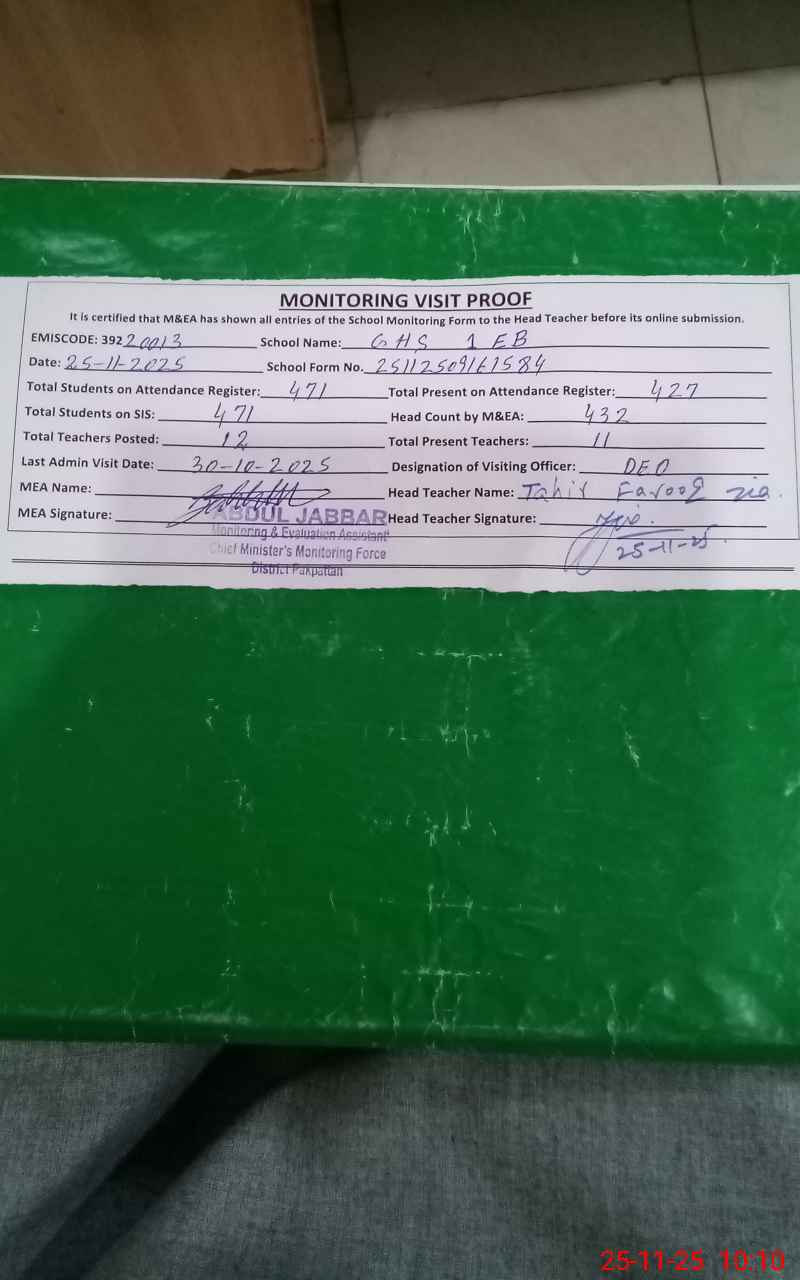 MONITORING VISIT PROOF
It is certified that M&EA has shown all entries of the School Monitoring Form to the Head Teacher before its online submission.
EMISCODE: 39220013 School Name: GHS 1 EB
Date: 25-11-2025 School Form No. 25112509161584
Total Students on Attendance Register: 471 Total Present on Attendance Register: 427
Total Students on SIS: 471 Head Count by M&EA: 432
Total Teachers Posted: 12 Total Present Teachers: 11
Last Admin Visit Date: 30-10-2025 Designation of Visiting Officer: DEO
MEA Name: Head Teacher Name: Tahir Farooq zia.
MEA Signature: ABDUL JABBAR Head Teacher Signature:
Monitoring & Evaluation Assistant
Chief Minister's Monitoring Force
District Pakpattan
25-11-25.
25-11-25 10:10